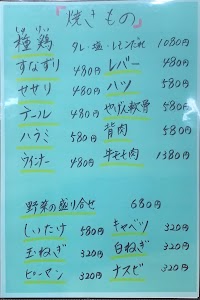 「焼きもの」
種鶏 タレ・塩・レモンだれ 1080円
すなずり 480円 レバー 480円
セセリ 480円 ハツ 580円
テール 480円 やげん軟骨 580円
ハラミ 580円 背肉 580円
ウインナー 480円 牛モモ肉 1380円
野菜の盛り合せ 680円
しいたけ 580円 キャベツ 320円
玉ねぎ 320円 白ねぎ 320円
ピーマン 320円 ナスビ 320円